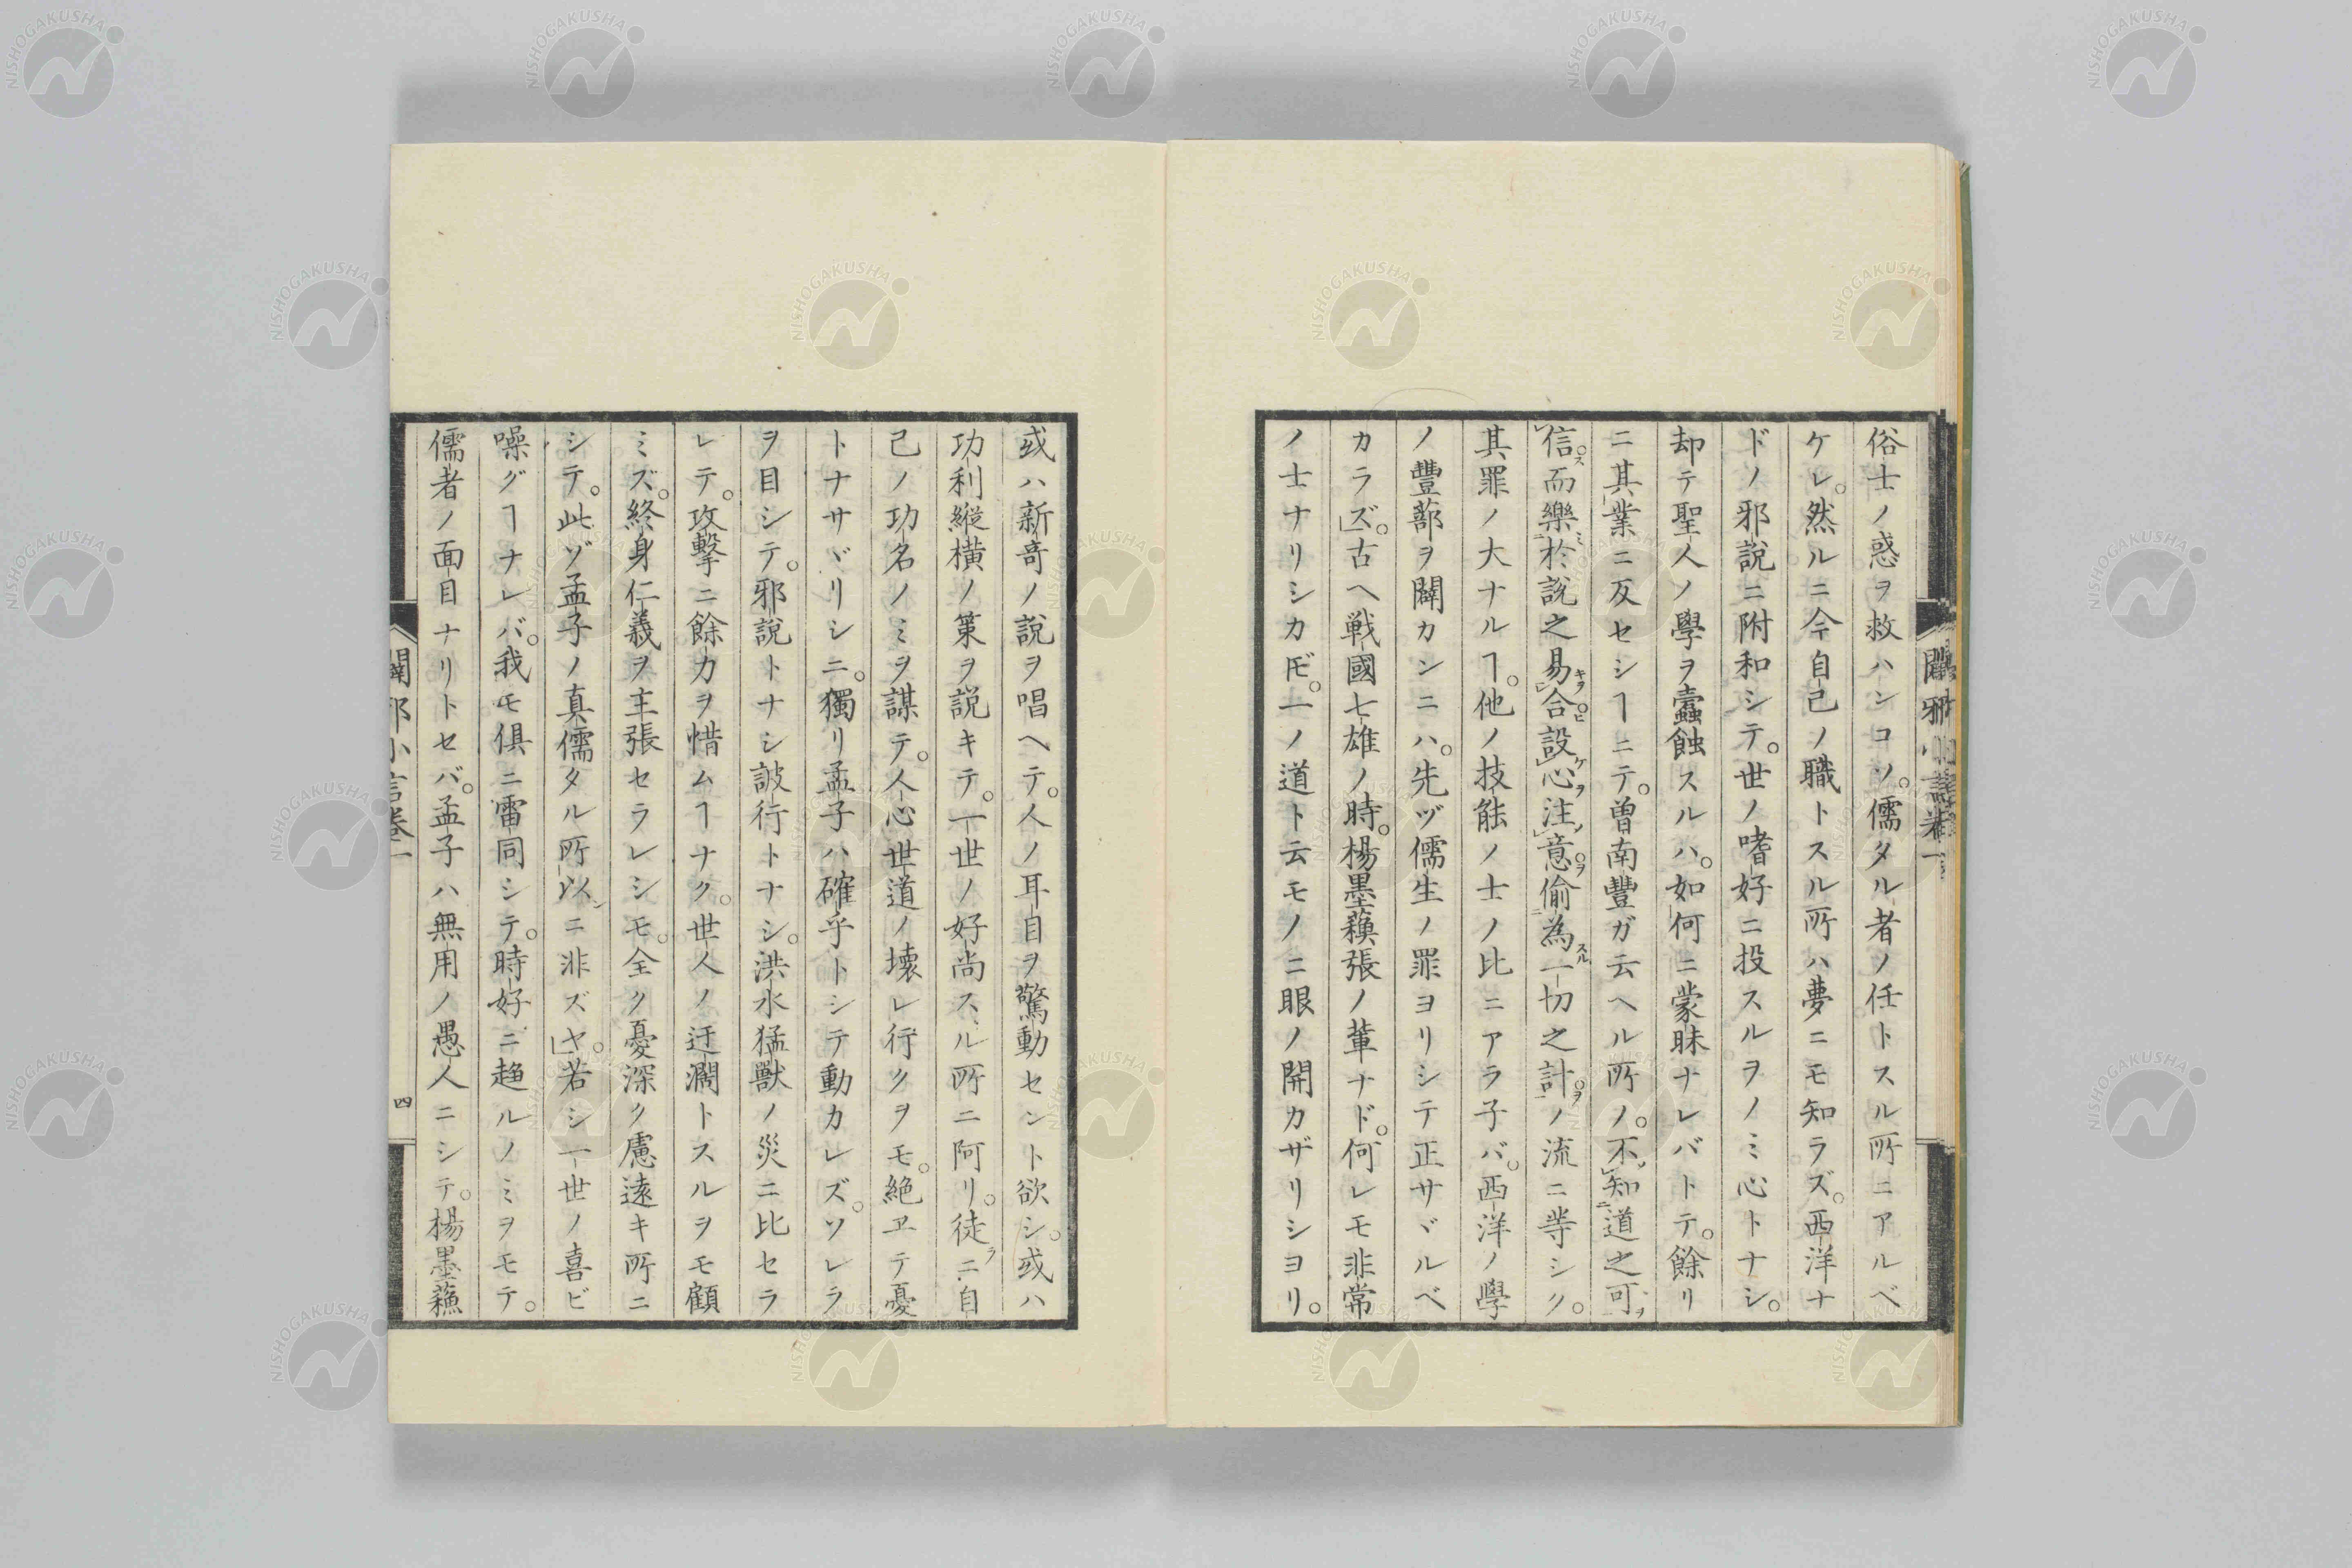 俗士ノ惑ヲ救ハンコソ。儒タル者ノ任トスル所ニアルベ
ケレ。然ルニ今自己ノ職トスル所ハ夢ニモ知ラズ。西洋ナ
ドノ邪說ニ附和シテ。世ノ嗜好ニ投スルヲノミ心トナシ。
却テ聖人ノ學ヲ蠹蝕スルハ。如何ニ蒙昧ナレバトテ。餘リ
ニ其業ニ反セシヿニテ。曽南豐ガ云ヘル所ノ。不知道之可
信而樂於說之易合設心注意偷為一切之計ノ流ニ等シク。
其罪ノ大ナルヿ。他ノ技能ノ士ノ比ニアラ子バ。西洋ノ學
ノ豐蔀ヲ闢カンニハ。先ヅ儒生ノ罪ヨリシテ正サヾルベ
カラズ。古ヘ戰國七雄ノ時。楊墨蘓張ノ輩ナド。何レモ非常
ノ士ナリシカ𪜈。一ノ道ト云モノニ眼ノ開カザリシヨリ。
或ハ新竒ノ說ヲ唱ヘテ。人ノ耳目ヲ驚動セント欲シ。或ハ
功利縱橫ノ策ヲ説キテ。一世ノ好尚スル所ニ阿リ。徒ラニ自
己ノ功名ノミヲ謀テ。人心世道ノ壞レ行クヲモ。絶ヱテ憂
トナサヾリシニ。獨リ孟子ハ確乎トシテ動カレズ。ソレラ
ヲ目シテ。邪說トナシ詖行トナシ。洪水猛獸ノ災ニ比セラ
レテ。攻擊ニ餘力ヲ惜ムヿナク。世人ノ迂濶トスルヲモ顧
ミズ。終身仁義ヲ主張セラレシモ。全ク憂深ク慮遠キ所ニ
シテ。此ゾ孟子ノ真儒タル所以ニ非ズヤ。若シ一世ノ喜ビ
噪グヿナレバ。我モ俱ニ雷同シテ。時好ニ趨ルノミヲモテ。
儒者ノ面目ナリトセバ。孟子ハ無用ノ愚人ニシテ。楊墨蘓
闢邪小言卷一
四
NISHOGAKUSHA